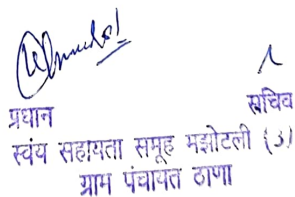 प्रधान सचिव
स्वंय सहायता समूह मझोटली (3)
ग्राम पंचायत ठाणा